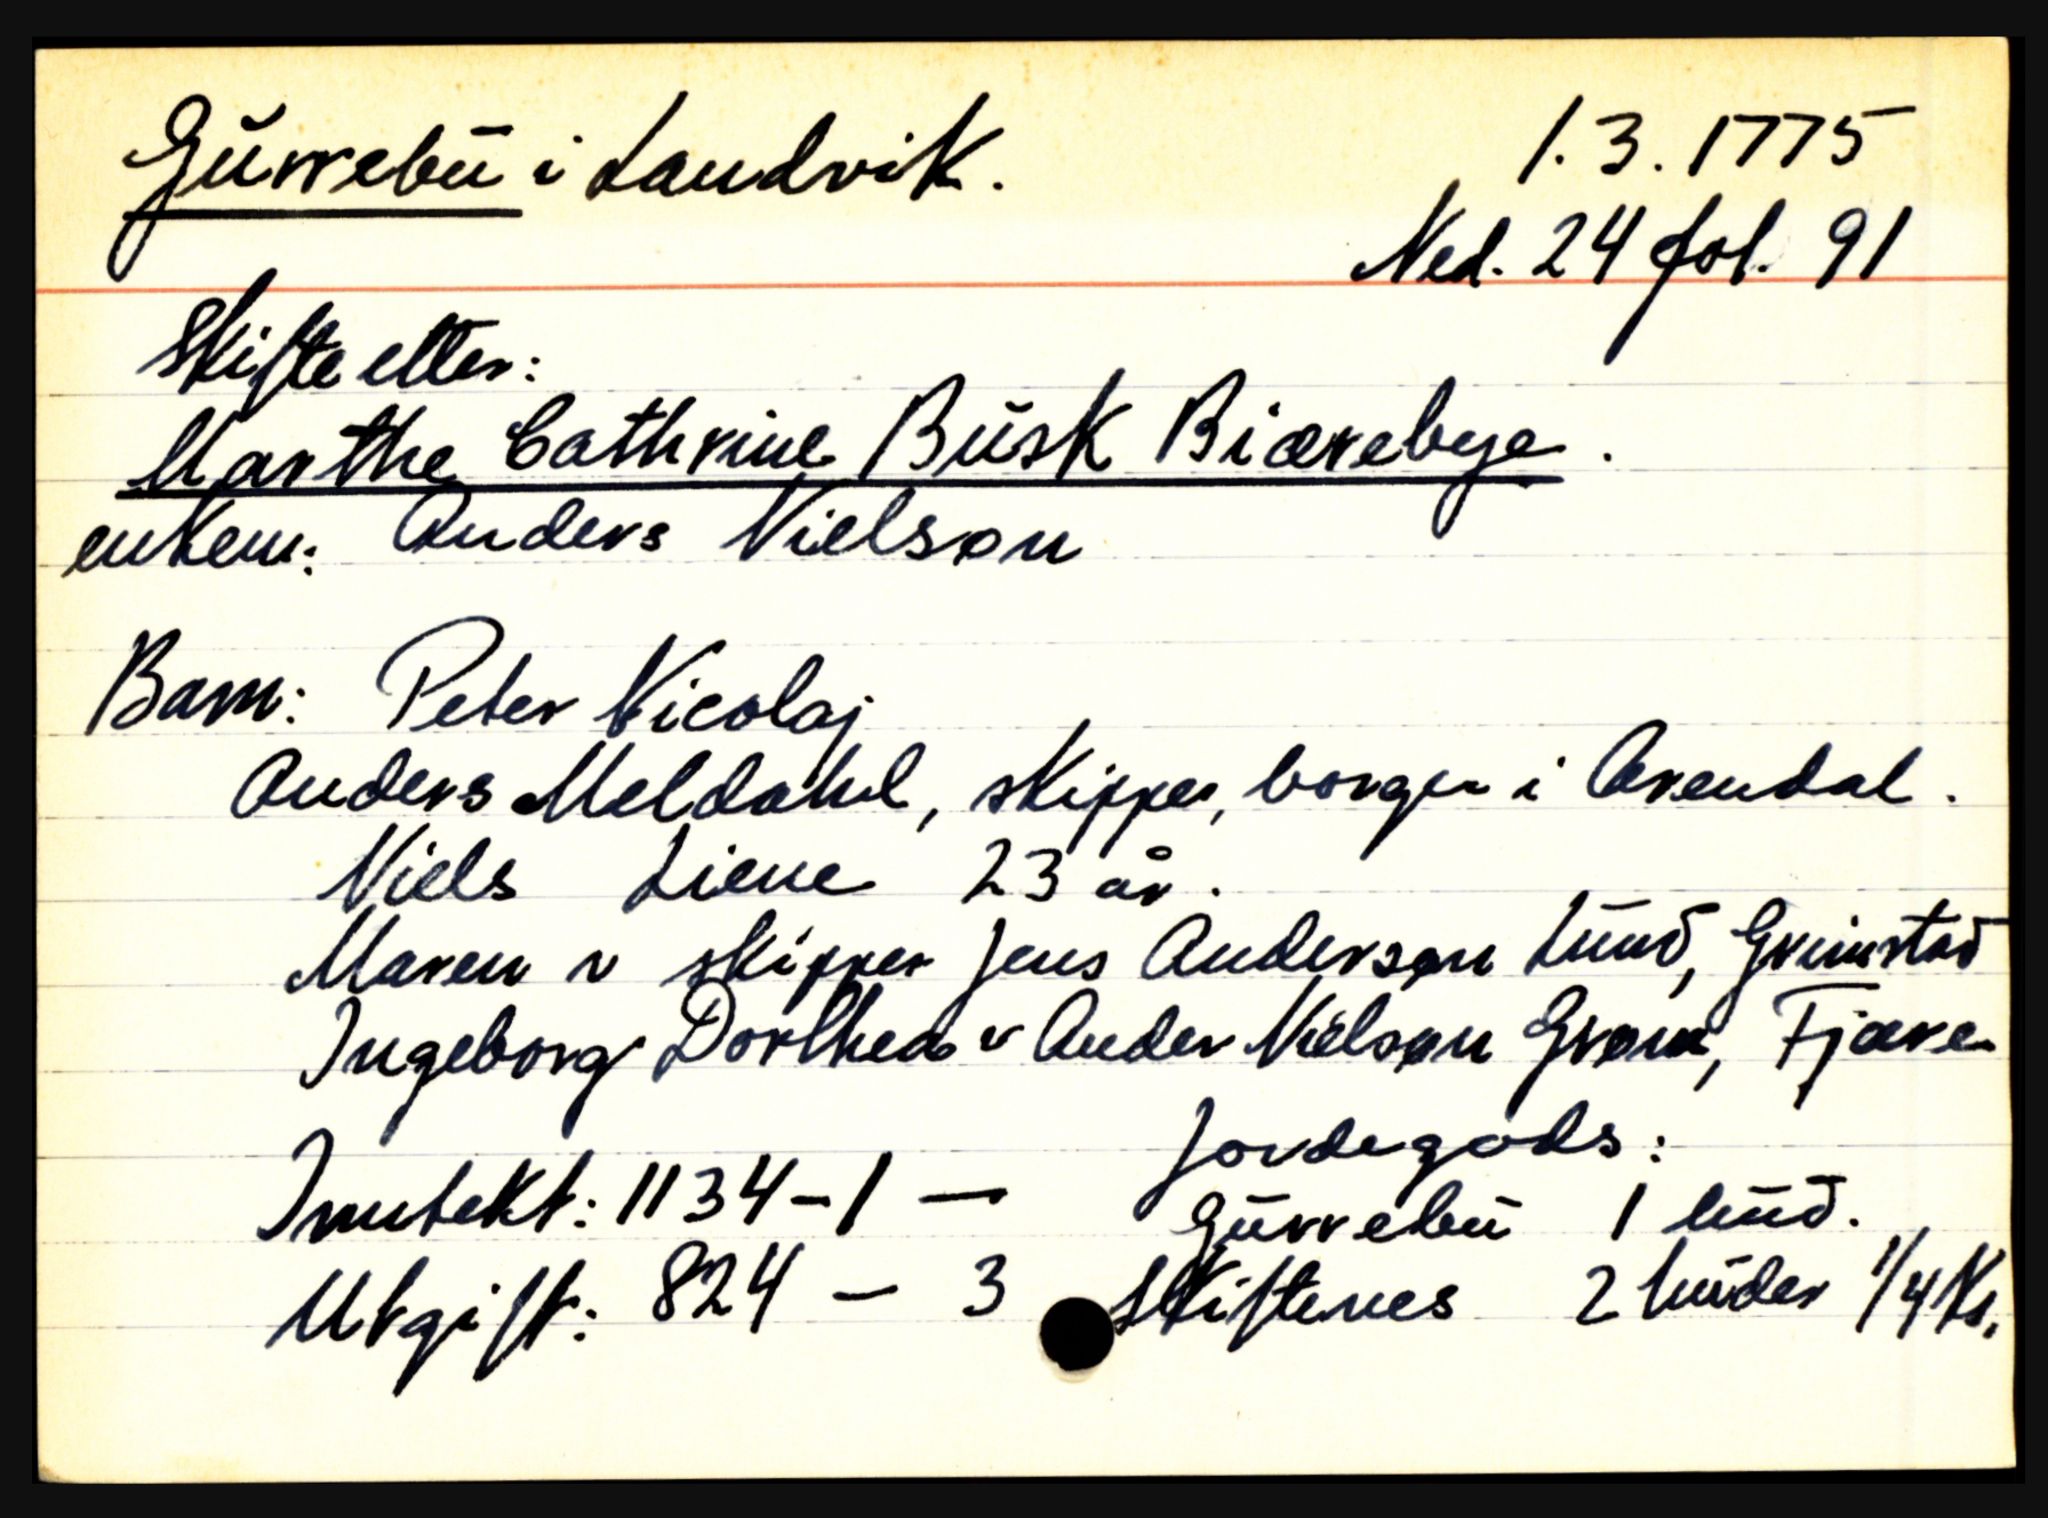 Gurrebu i Landvik.
1.3.1775
Ned. 24 fol. 91
Skifte etter:
Marthe Cathrine Busk Biærebye.
enkem: Anders Nielsøn
Barn: Peter Nicolaj
Anders Meldahl, skipper, borger i Arendal.
Niels Liene 23 år.
Maren v skipper Jens Andersøn Lund, Grimstad
Ingeborg Dorthea v Ander Nielsøn Grøm, Fjære
Jordegods:
Inntekt: 1134-1 —
Gurrebu 1 hud.
Utgift: 824 – 3
Skiftenes 2 huder 1/4 Ks.